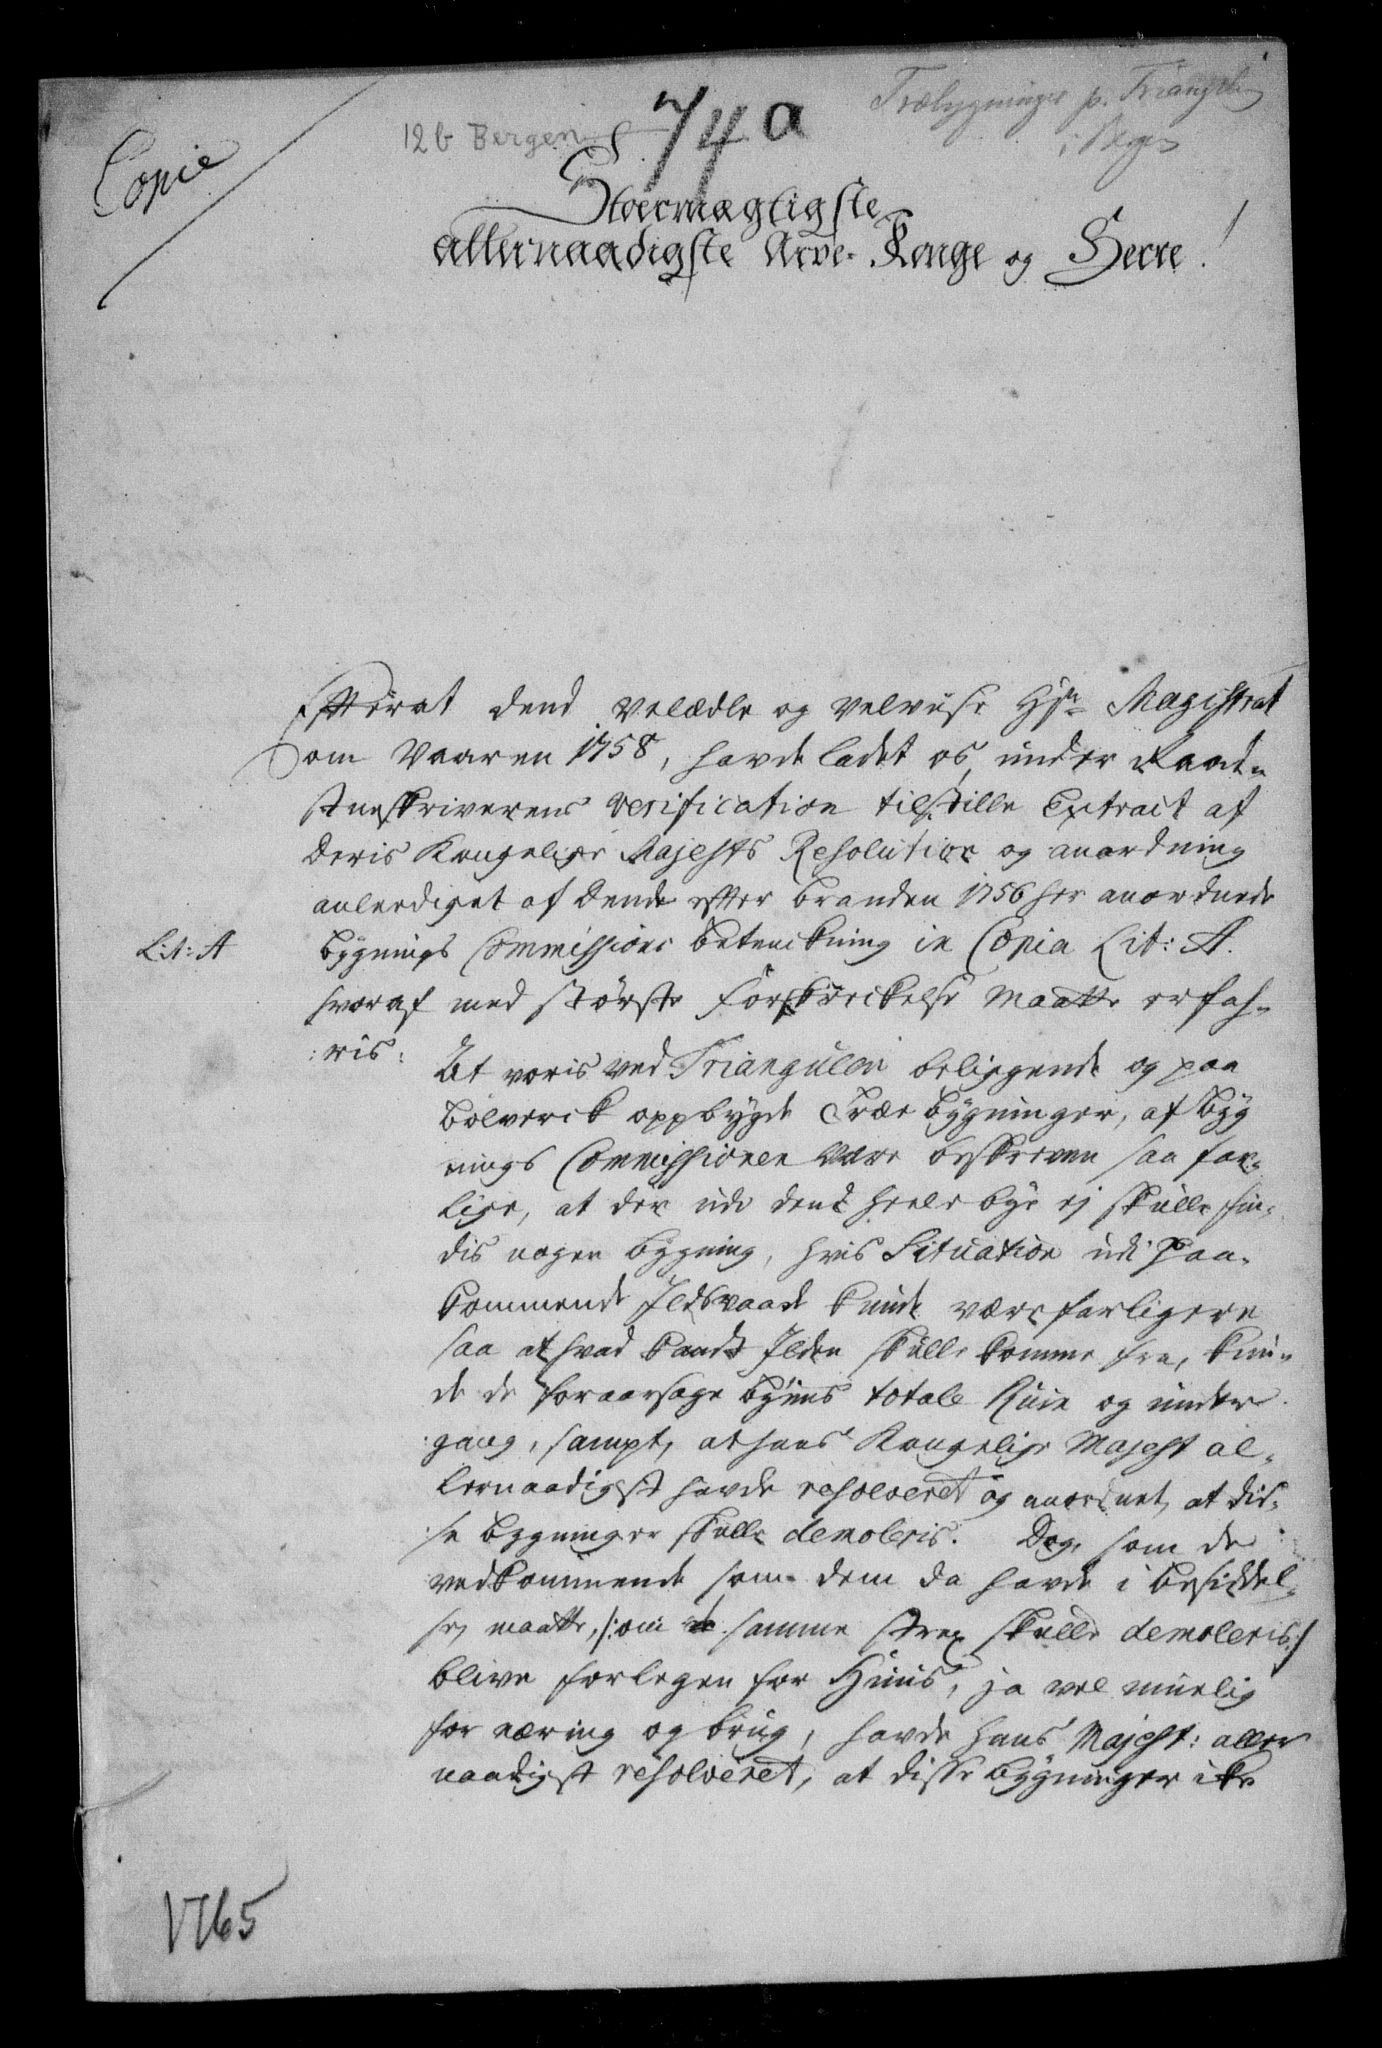 Træbygninger p. Triangelen
i Bergen
12 b Bergen
74 a
Copie
Stoermægtigste
allernaadigste Arve-Konge og Herre!
Efterat dend Velædle og Velviise Hr Magistrat
om Vaaren 1758, hafde ladet os under Raad-
stueskriverens Verification tilstille Extract af
Deris Kongelige Majests Resolution og anordning
anlendiget af Dend efter branden 1756 her anordnede
Lit: A
bygnings Commissions betenckning in Copia Lit: A.
hvoraf med største Forskreckelse Maatte erfah-
:ris:
At voris ved Triangulen beliggende og paa
bolverck oppbygde Træe bygninger, af byg
nings Commissionen Vare beskreven saa far-
lige, at der udi dend heele bye ej skulle fin-
dis nogen bygning, hvis Situation udi Paa-
kommende Ildsvaade kunde være farligere
saa at hvad Kandt Ilden skulle komme fra, kun-
de de foraarsage byens totale Ruin og under
gang, sampt, at hans Kongelige Majest al-
lernaadigst hafde resolveret og anordnet, at dis-
se bygninger skulle demoleris. Dog, som de
vedkommende som dem da hafde i besiddel-
se, maatte, /:om samme strax skulle demoleris:/
blive forlegen for Huus, ja vel muelig
for næring og brug, hafde hans Majest: aller
naadigst resolveret, at disse bygninger ike
1765